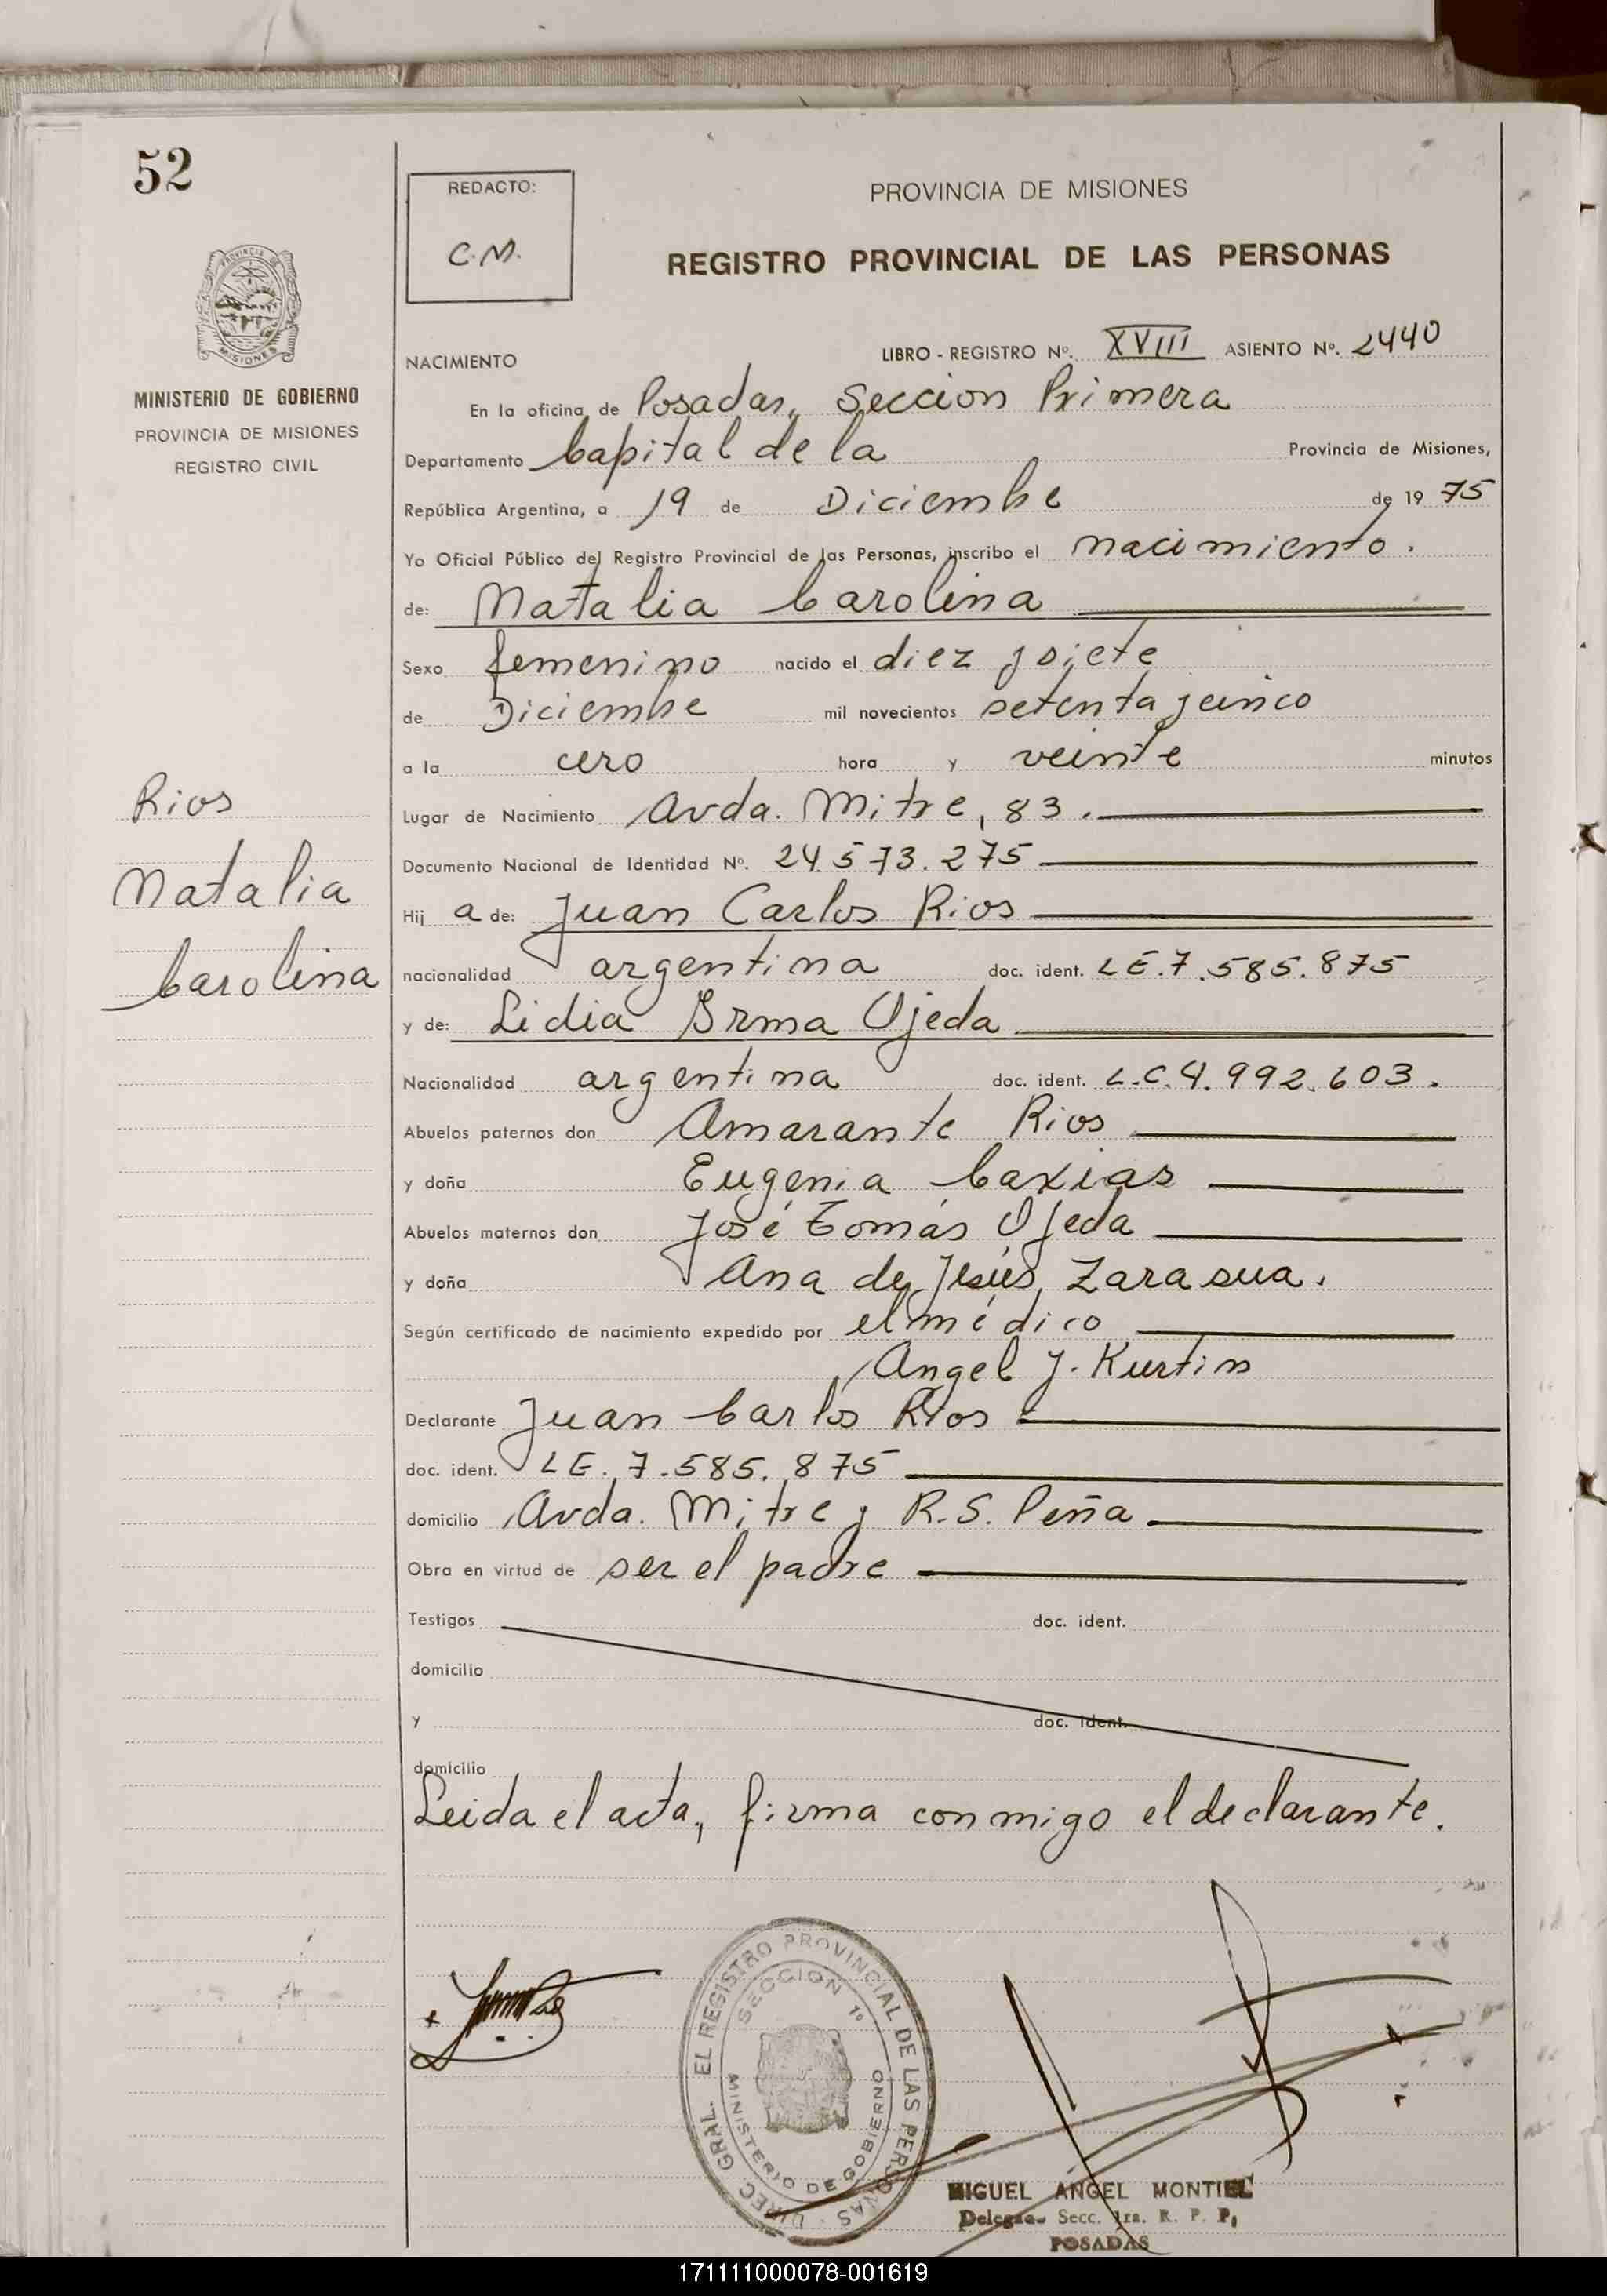 52
REDACTO:
C.M.
PROVINCIA DE MISIONES
REGISTRO PROVINCIAL DE LAS PERSONAS
PROVINCIA DE
MISIONES
MINISTERIO DE GOBIERNO
PROVINCIA DE MISIONES
REGISTRO CIVIL
NACIMIENTO
LIBRO - REGISTRO Nº. XVIII ASIENTO Nº. 2440
En la oficina de Posadas, Seccion Primera
Departamento Capital de la Provincia de Misiones,
República Argentina, a 19 de Diciembre de 1975
Yo Oficial Público del Registro Provincial de las Personas, inscribo el nacimiento.
de: Natalia Carolina
Sexo femenino nacido el diez y siete
de Diciembre mil novecientos setenta y cinco
a la cero hora y veinte minutos
Rios
Natalia
Carolina
Lugar de Nacimiento Avda. Mitre, 83.
Documento Nacional de Identidad Nº. 24.573.275
Hij a de: Juan Carlos Rios
nacionalidad argentina doc. ident. LE.7.585.875
y de: Lidia Irma Ojeda
Nacionalidad argentina doc. ident. L.C.4.992.603.
Abuelos paternos don Amarante Rios
y doña Eugenia Caxias
Abuelos maternos don José Tomás Ojeda
y doña Ana de Jesús Zarasua.
Según certificado de nacimiento expedido por el médico
Angel J. Kurtin
Declarante Juan Carlos Rios
doc. ident. LE. 7.585.875
domicilio Avda. Mitre y R.S. Peña
Obra en virtud de ser el padre
Testigos doc. ident.
domicilio
y doc. ident.
domicilio
Leida el acta, firma conmigo el declarante.
DIREC. GRAL. EL REGISTRO PROVINCIAL DE LAS PERSONAS
SECCION 1º
MINISTERIO DE GOBIERNO
MIGUEL ANGEL MONTIEL
Delegado Secc. 1ra. R. P. P.
POSADAS
171111000078-001619